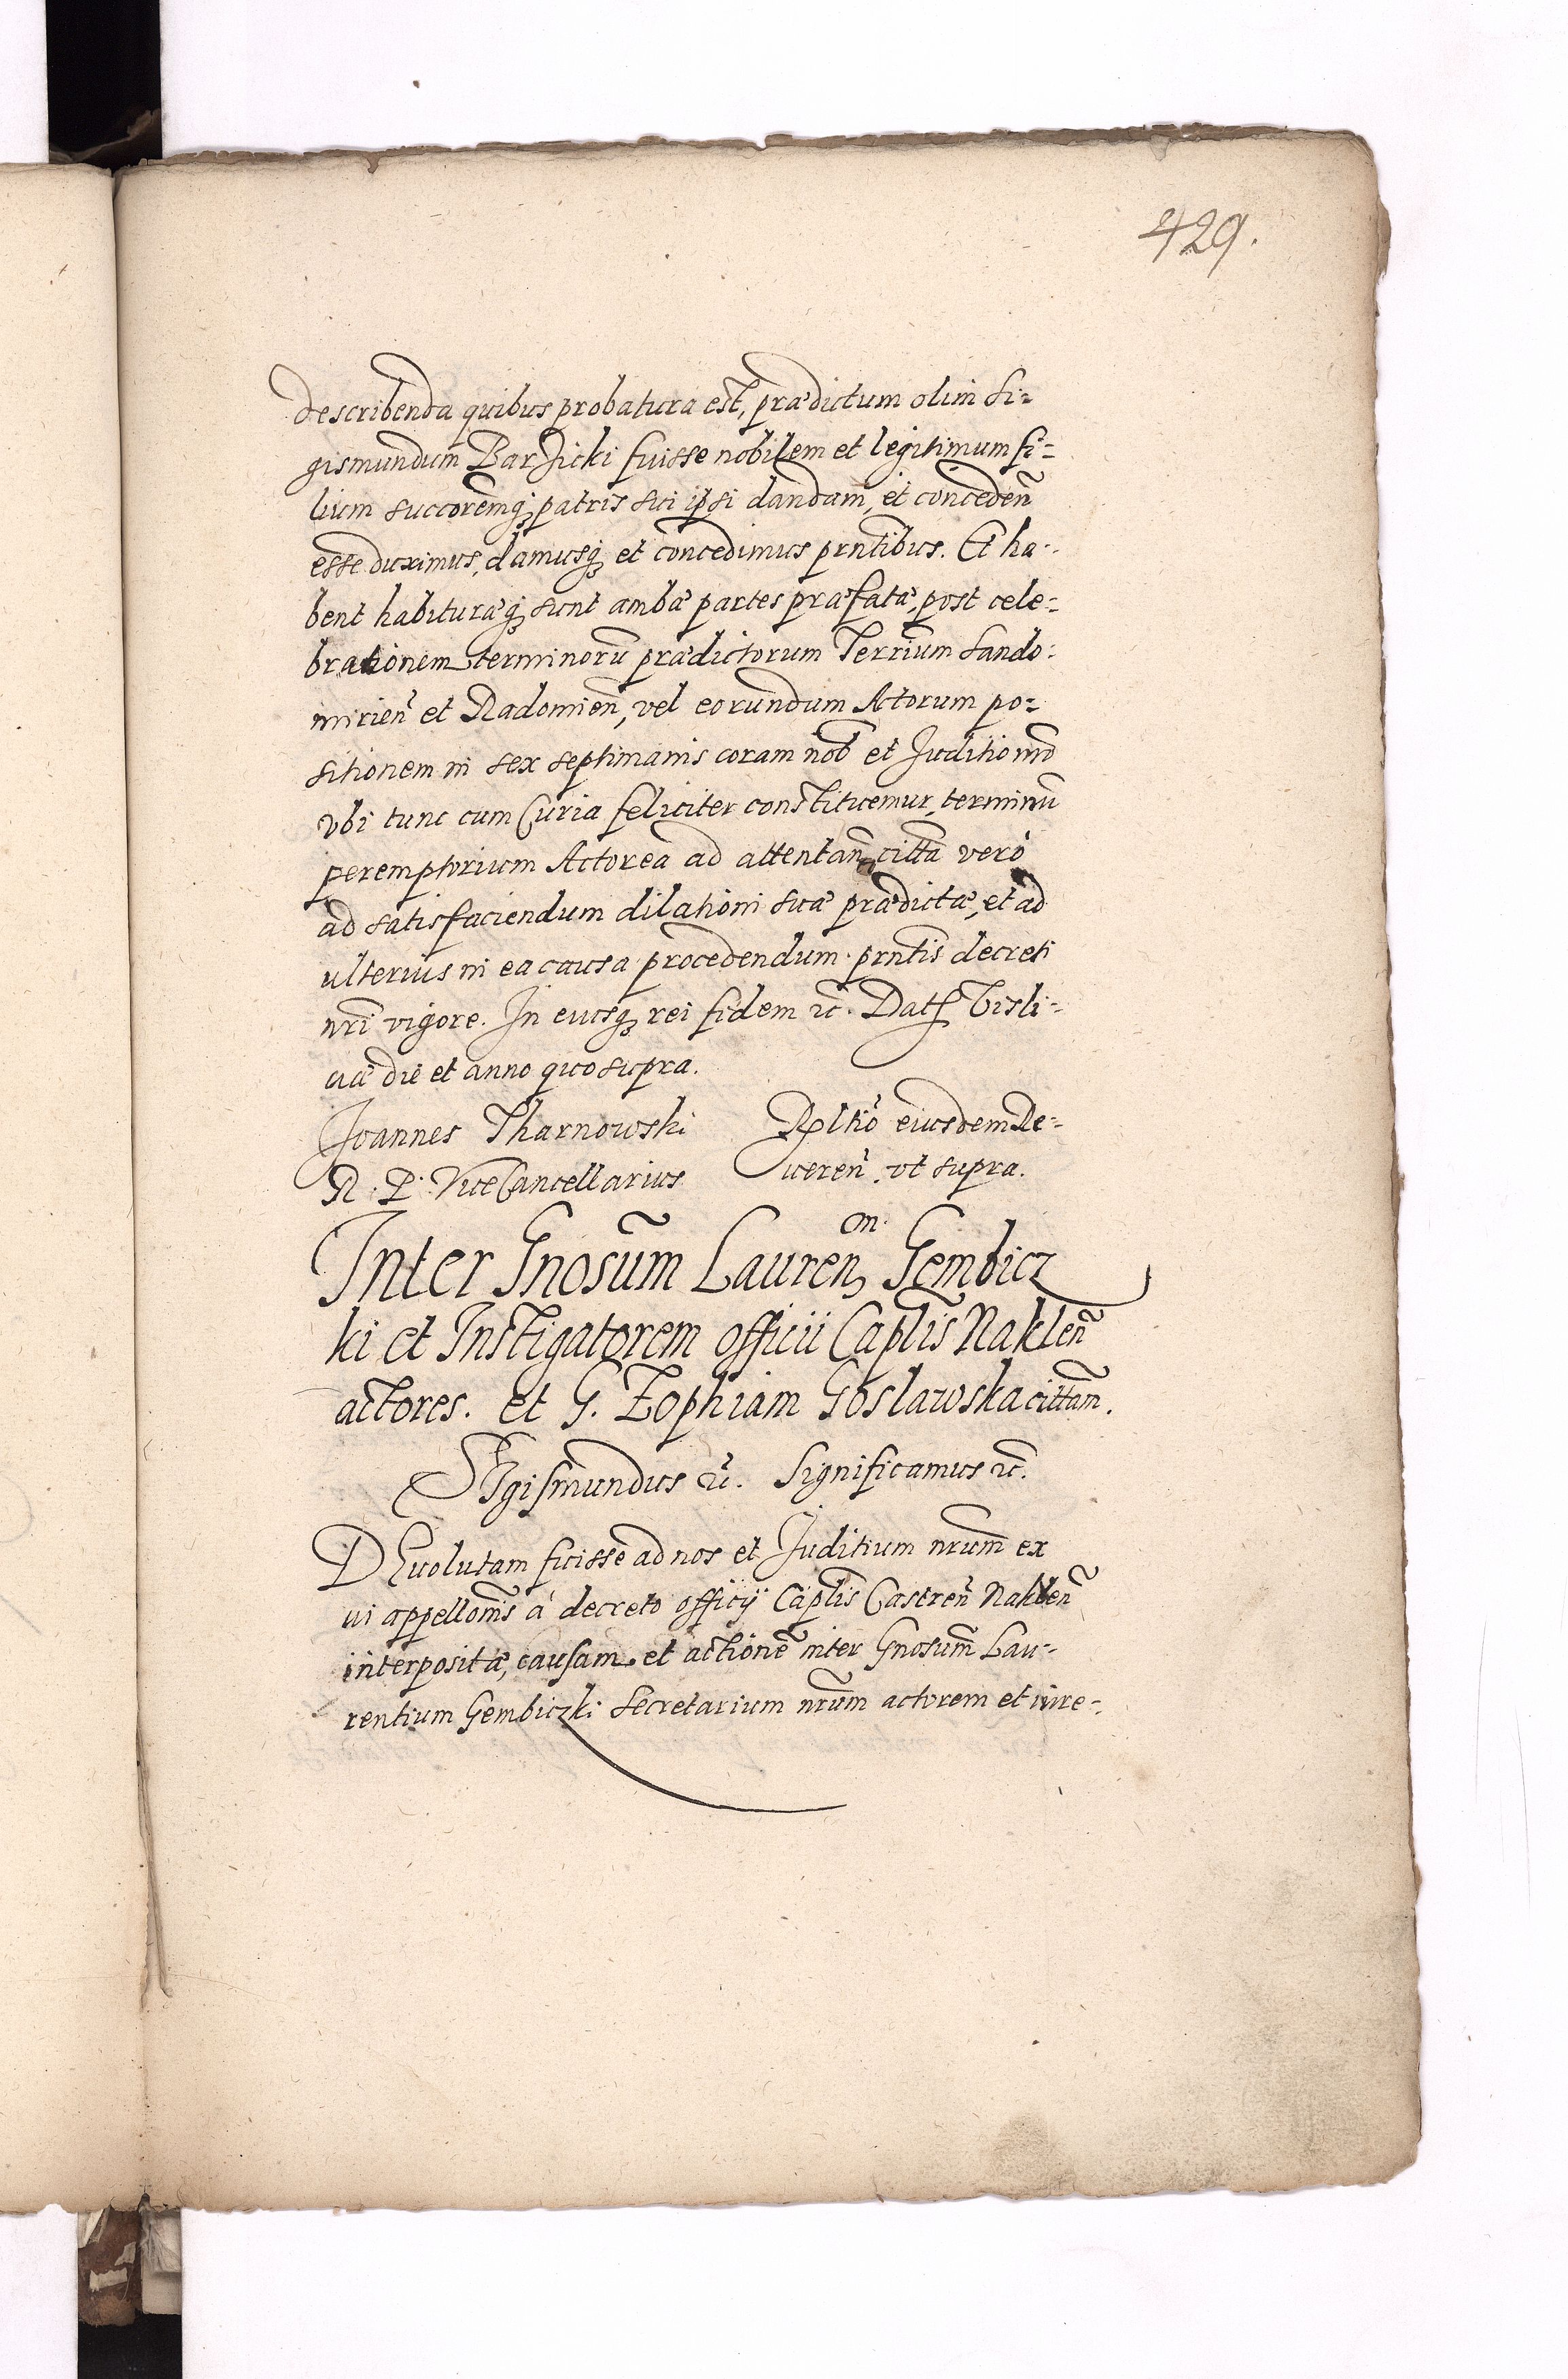 429.
describenda quibus probatura est, prædictum olim Si=
gismundum Barzicki fuisse nobilem et legitimum fi=
lium succorem̃q; patris sui ipsi dandam, et conceden̄
esse duximus, damusq; et concedimus prn̄tibus. Et ha=
bent habituræq; sunt ambæ partes præfatæ, post cele=
brationem terminorū prædictorum Terrium̄ Sando=
mirien̄ et Radomien̄, vel eorundum Actorum po=
sitionem in sex septimanis coram nob̄ et Juditio nr̄o
vbi tunc cum Curia feliciter constituemur, terminū
peremptorium Actorea ad attentan̄, citt̄a vero
ad satisfaciendum dilationi suæ prædictæ, et ad
ulterius in ea causa procedendum. prn̄tis decreti
nr̄i vigore. In cuiusq; rei fidem rc̄. Dat. Visli=
ciæ die et anno quo supra.
Joannes Tharnowski
R. P. ViceCancellarius
Rltio eiusdem Re=
ueren̄. vt supra.
Inter Gnosum̄ Lauren, m. Gembicz
ki et Instigatorem officii Capl̄is Naklen̄
actores. et G. Zophiam Goslawska cittam̄.
Sigismundus rc̄. Significamus rc̄.
DEuolutam fuisse ad nos et Juditium nrum̄ ex
ui appellonis̄ à decreto officij Capl̄is Castren̄ Naklen̄
interpositæ, causam et actionē inter Gnosum̄ Lau=
rentium Gembiczki Secretarium nrum̄ actorem et in re=